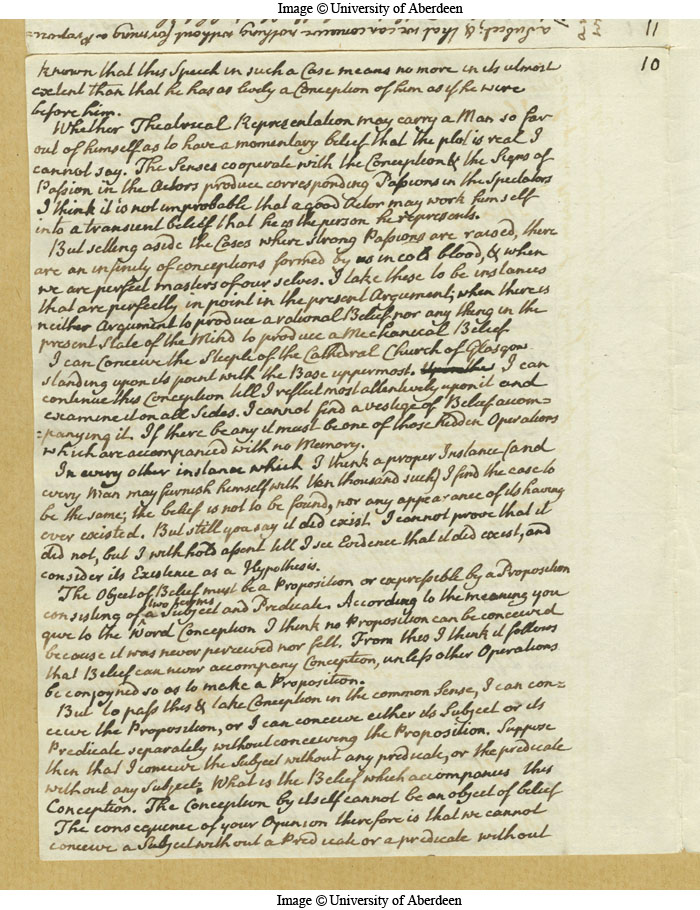 Image © University of Aberdeen
a Subject; & that we can conceive nothing without
11
10
known that this Speech in such a Case means no more in its utmost
extent than that he has as lively a Conception of him as if he were
before him.
Whether Theatrical Representation may carry a Man so far
out of himself as to have a momentary belief that the plot is real I
cannot say. The Senses cooperate with the Conception & the Signs of
Passion in the Actors produce corresponding Passions in the Spectators
I think it is not improbable that a good Actor may work himself
into a transient belief that he is the person he represents.
But setting aside the Cases where strong Passions are raised, there
are an infinity of conceptions formed by us in cold blood, & when
we are perfect masters of our selves. I take these to be instances
that are perfectly in point in the present Argument; when there is
neither Argument to produce a rational Belief nor any thing in the
present State of the Mind to produce a Mechanical Belief
I can Conceive the Steeple of the Cathedral Church of Glasgow
standing upon its point with the Base uppermost. I can
continue this Conception till I reflect most attentively upon it and
examine it on all Sides. I cannot find a vestige of Belief accom-
=panying it. If there be any it must be one of those hidden Operations
which are accompanied with no Memory.
In every other instance which I think a proper Instance (and
every Man may furnish himself with ten thousand such) I find the case to
be the same; the belief is not to be found, nor any appearance of its having
ever existed. But still you say it did exist I cannot prove that it
did not, but I with hold assent till I see Evidence that it did exist, and
consider its Existence as a Hypothesis.
The Object of Belief must be a Proposition or expressible by a Proposition
two terms
consisting of a Subject and Predicate. According to the meaning you
give to the Word Conception I think no Proposition can be conceived
because it was never perceived nor felt. From this I think it follows
that Belief can never accompany Conception, unless other Operations
be conjoyned so as to make a Proposition.
But to pass this & take Conception in the common Sense, I can con=
ceive the Proposition, or I can conceive either its Subject or its
Predicate separately without conceiving the Proposition. Suppose
then that I conceive the Subject without any predicate, or the predicate
without any Subject. What is the Belief which accompanies this
Conception. The Conception by itself cannot be an object of belief
The consequence of your Opinion therefore is that we cannot
conceive a Subject without a Predicate or a predicate without
Image © University of Aberdeen